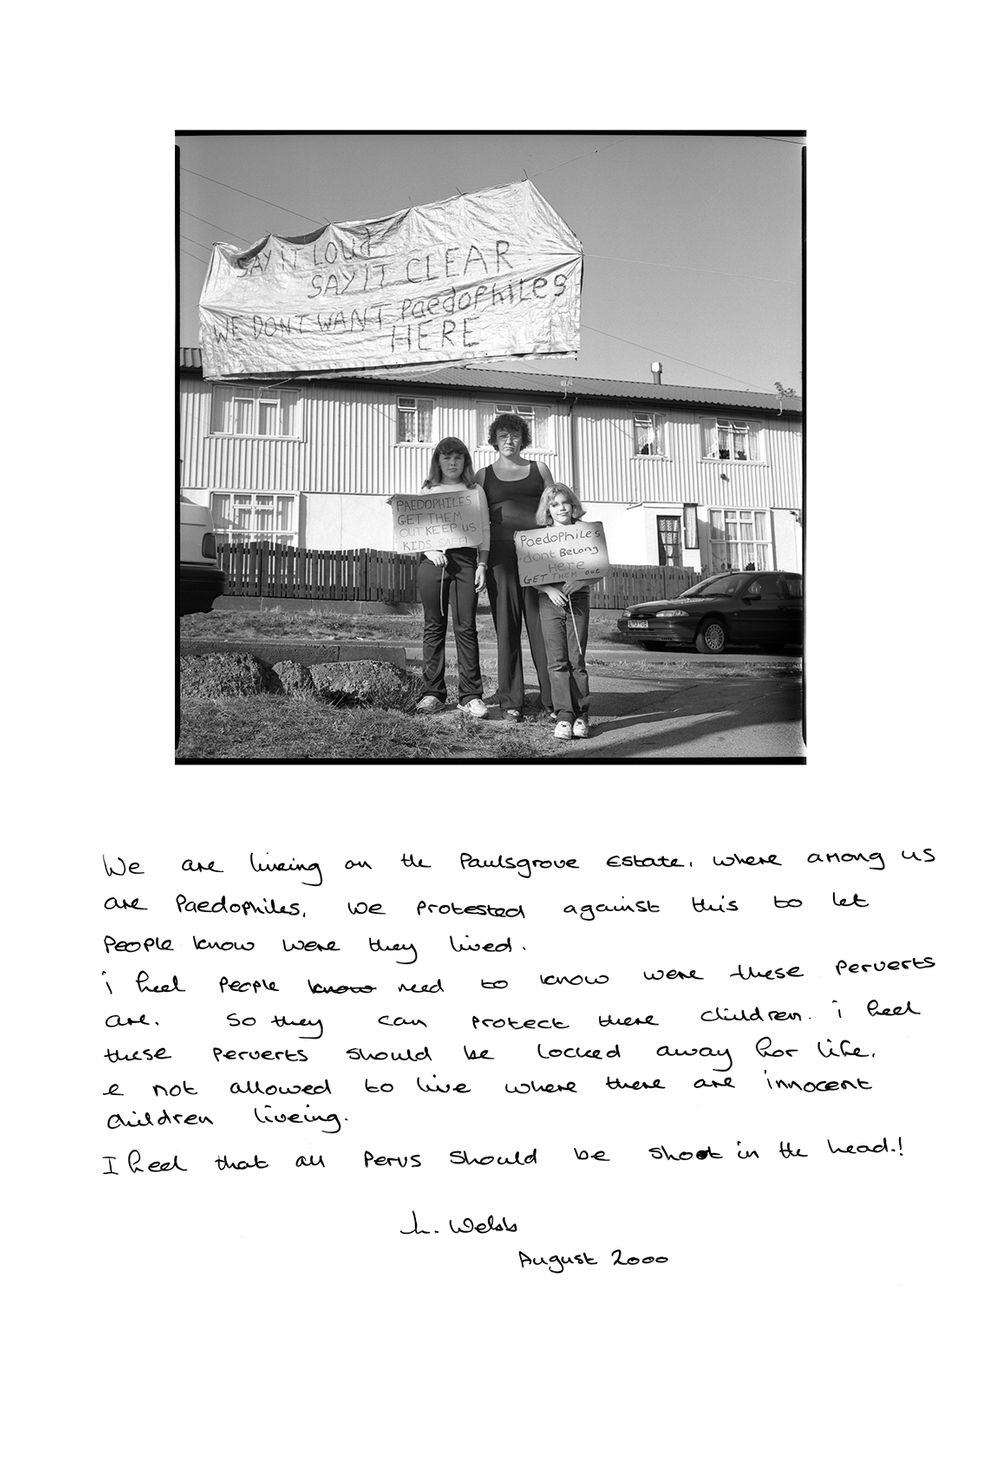 SAY IT LOUD
SAY IT CLEAR
WE DONT WANT PaedoPHiLes
HERE
PAEDOPHILES
GET THEM
OUT KEEP US
KIDS SAFE!
PaedoPHiLes
dont Belong
Here
GET THEM OUT
We are liveing on the Paulsgrove Estate, where among us
are Paedophiles, we protested against this to let
People know were they lived.
i feel People know need to know were these perverts
are. So they can protect there children. i feel
these perverts should be locked away for life,
e not allowed to live where there are innocent
children liveing.
I feel that all Pervs should be shoot in the head.!
L. Webb
August 2000